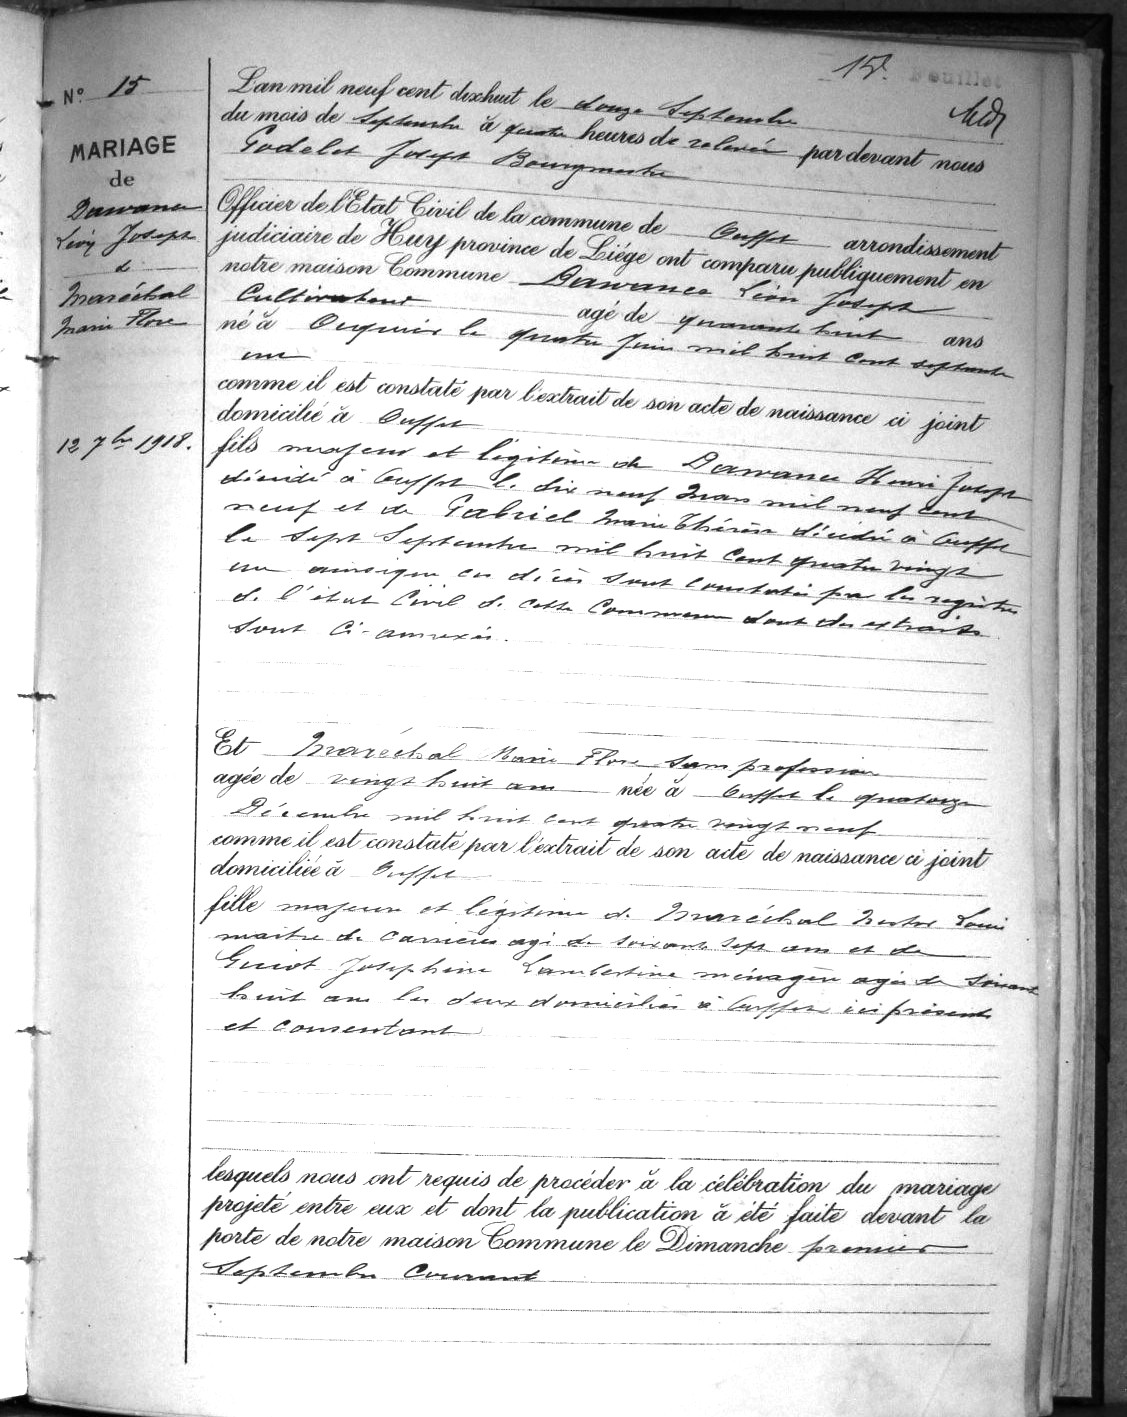 15e Feuillet
N° 15
MARIAGE
de
Dawance
Léon Joseph
&
Maréchal
Marie Flore
12 7bre 1918.
L'an mil neuf cent dixhuit le douze Septembre
du mois de Septembre à quatre heures de relevée par devant nous
Godelet Joseph Bourgmestre
Officier de l'Etat Civil de la commune de Ouffet arrondissement
judiciaire de Huy province de Liége ont comparu publiquement en
notre maison Commune Dawance Léon Joseph
Cultivateur agé de quarante huit ans
né à Ocquier le quatre Juin mil huit cent septante
une
comme il est constaté par l'extrait de son acte de naissance ci joint
domicilié à Ouffet
fils majeur et légitime de Dawance Henri Joseph
décédé à Ouffet le dix neuf Mars mil neuf cent
neuf et de Gabriel Marie Thérèse décédée à Ouffet
le Sept Septembre mil huit cent quatre vingt
un ainsi que ces décès sont constatés par les registres
de l'état Civil de cette Commune dont des extraits
sont ci-annexés.
Et Maréchal Marie Flore Sans profession
agée de vingt huit ans née à Ouffet le quatorze
Décembre mil huit cent quatre vingt neuf
comme il est constaté par l'extrait de son acte de naissance ci joint
domiciliée à Ouffet
fille majeure et légitime de Maréchal Nestor Louis
maître de carrières agé de soixante sept ans et de
Guiot Joséphine Lambertine ménagère agée de soixante
huit ans les deux domiciliés à Ouffet ici présents
et consentant
lesquels nous ont requis de procéder à la célébration du mariage
projeté entre eux et dont la publication à été faite devant la
porte de notre maison Commune le Dimanche premier
Septembre Courant